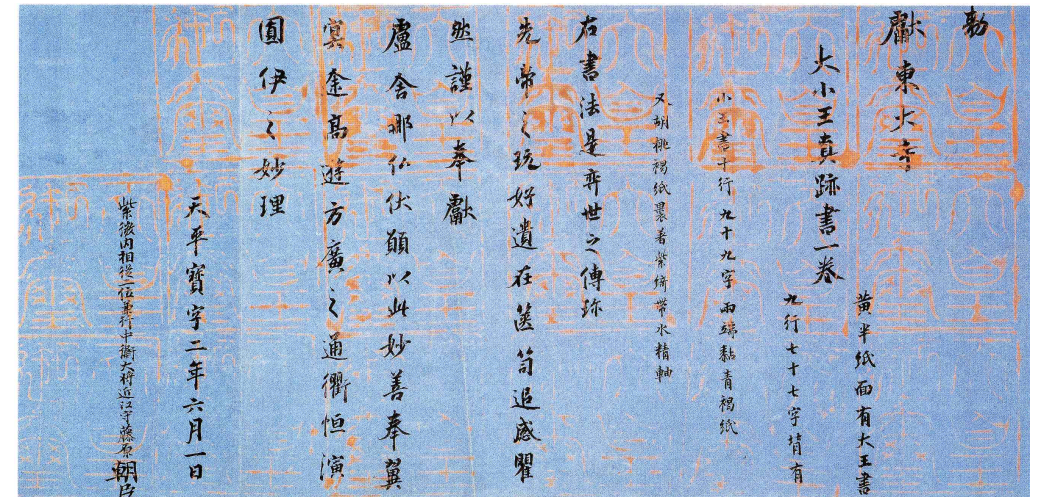 勅
獻東大寺
大小王真跡書一卷
黃半紙面有大王書
九行七十七字背有
小王書十行九十九字兩端黏青褐紙
又胡桃褐紙裹著紫綺帶水精軸
右書法是弈世之傳珎
先帝之玩好遺在篋笥追感瞿
然謹以奉獻
盧舍那仏伏願以此妙善奉翼
冥途高遊方廣之通衢恒演
圓伊之妙理
天平寶字二年六月一日
紫微內相從二位兼行中衛大將近江守藤原朝臣